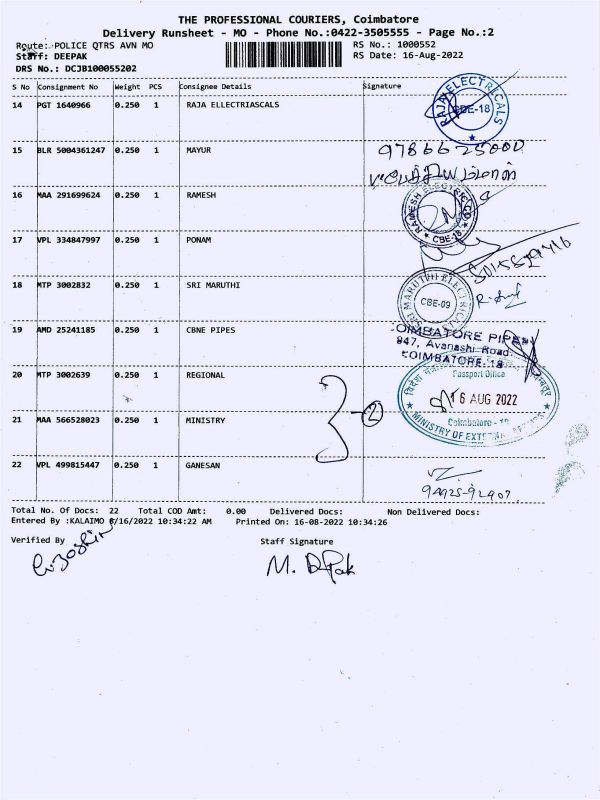 THE PROFESSIONAL COURIERS, Coimbatore
Delivery Runsheet - MO - Phone No.:0422-3505555 - Page No.:2
Route: POLICE QTRS AVN MO RS No.: 1000552
Staff: DEEPAK RS Date: 16-Aug-2022
DRS No.: DCJB100055202
S No Consignment No Weight PCS Consignee Details Signature
14 PGT 1640966 0.250 1 RAJA ELLECTRIASCALS
RAJA ELECTRICALS
CBE-18
15 BLR 5004361247 0.250 1 MAYUR
9786625000
16 MAA 291699624 0.250 1 RAMESH
RAMESH ELECTRIC CO
CBE-18
17 VPL 334847997 0.250 1 PONAM
18 MTP 3002832 0.250 1 SRI MARUTHI
SRI MARUTHI ELECTRICAL
CBE-09
19 AMD 25241185 0.250 1 CBNE PIPES
COIMBATORE PIPES
847, Avanashi Road
COIMBATORE-18
20 MTP 3002639 0.250 1 REGIONAL
Passport Office
16 AUG 2022
2
21 MAA 566528023 0.250 1 MINISTRY
Coimbatore - 18
MINISTRY OF EXTERNAL
22 VPL 499815447 0.250 1 GANESAN
94925-92907
Total No. Of Docs: 22 Total COD Amt: 0.00 Delivered Docs: Non Delivered Docs:
Entered By :KALAIMO 8/16/2022 10:34:22 AM Printed On: 16-08-2022 10:34:26
Verified By Staff Signature
M. Dpak